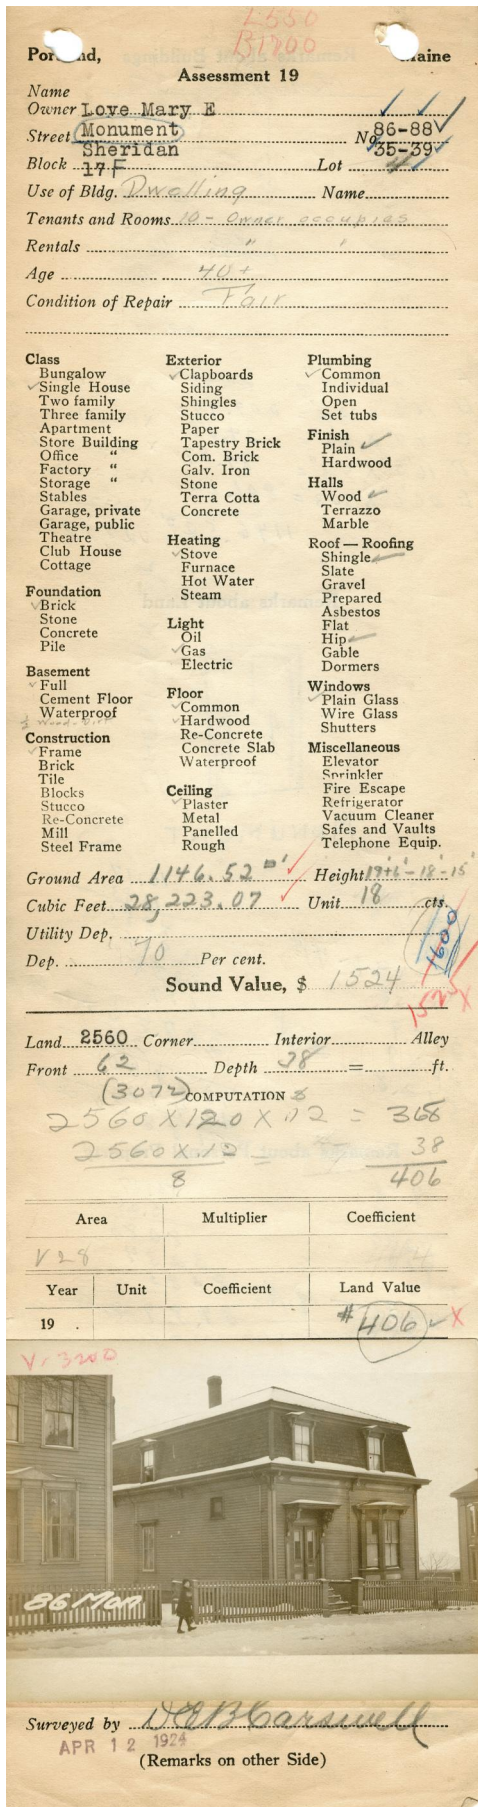 L550
B1200
Portland, Maine
Assessment 19
Name
Owner Love Mary E
Street Monument No. 86-88
Sheridan 35-39
Block 17 F Lot 4
Use of Bldg. Dwelling Name
Tenants and Rooms 10 - Owner occupies
Rentals " "
Age 40+
Condition of Repair Fair
Class
Bungalow
✓ Single House
Two family
Three family
Apartment
Store Building
Office "
Factory "
Storage "
Stables
Garage, private
Garage, public
Theatre
Club House
Cottage
Foundation
✓ Brick
Stone
Concrete
Pile
Basement
✓ Full
Cement Floor
Waterproof
Construction
✓ Frame
Brick
Tile
Blocks
Stucco
Re-Concrete
Mill
Steel Frame
Exterior
✓ Clapboards
Siding
Shingles
Stucco
Paper
Tapestry Brick
Com. Brick
Galv. Iron
Stone
Terra Cotta
Concrete
Heating
✓ Stove
Furnace
Hot Water
Steam
Light
Oil
✓ Gas
Electric
Floor
✓ Common
✓ Hardwood
Re-Concrete
Concrete Slab
Waterproof
Ceiling
✓ Plaster
Metal
Panelled
Rough
Plumbing
✓ Common
Individual
Open
Set tubs
Finish
Plain ✓
Hardwood
Halls
Wood ✓
Terrazzo
Marble
Roof — Roofing
Shingle ✓
Slate
Gravel
Prepared
Asbestos
Flat
Hip ✓
Gable
Dormers
Windows
✓ Plain Glass
Wire Glass
Shutters
Miscellaneous
Elevator
Sprinkler
Fire Escape
Refrigerator
Vacuum Cleaner
Safes and Vaults
Telephone Equip.
Ground Area 1146.52 □' Height 19+6'-18'-15'
Cubic Feet 28,223.07 Unit 18 cts.
Utility Dep.
1600
Dep. 70 Per cent.
Sound Value, $ 1524
1525 X
Land 2560 Corner Interior Alley
Front 62 Depth 38 = ft.
(3072) COMPUTATION
2560 X 120 X .12 = 368
2560 X .12 = 38
8 406
Area Multiplier Coefficient
V28
Year Unit Coefficient Land Value
19 . # 406 ✓ X
V. 3200
86 Mon
Surveyed by D E B Carswell
APR 12 1924
(Remarks on other Side)